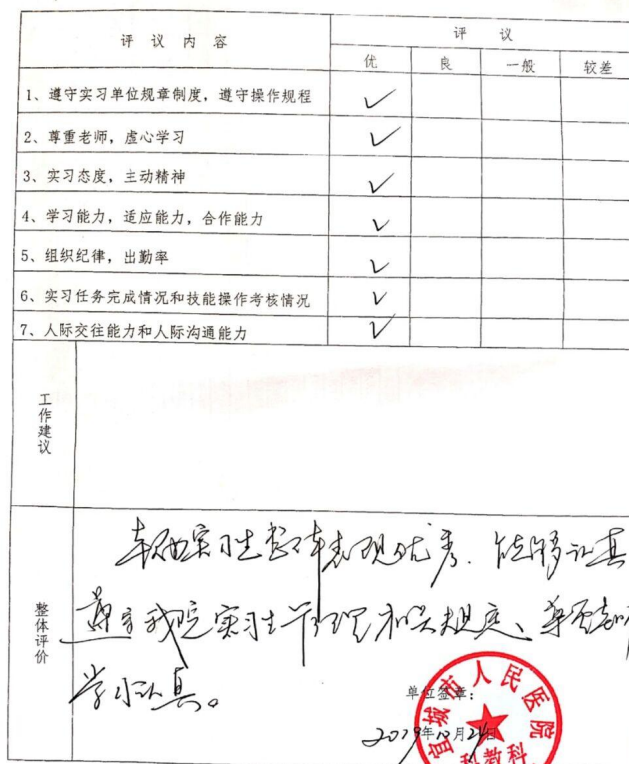 评议内容 评议
优 良 一般 较差
1、遵守实习单位规章制度，遵守操作规程 ✓
2、尊重老师，虚心学习 ✓
3、实习态度，主动精神 ✓
4、学习能力，适应能力，合作能力 ✓
5、组织纪律，出勤率 ✓
6、实习任务完成情况和技能操作考核情况 ✓
7、人际交往能力和人际沟通能力 ✓
工作建议
整体评价
实习生 表现优秀．能够认真
遵守我院实习生管理相关规定、尊重老师
学习认真。
单位签章：
2019年10月24日
宜城市人民医院
科教科